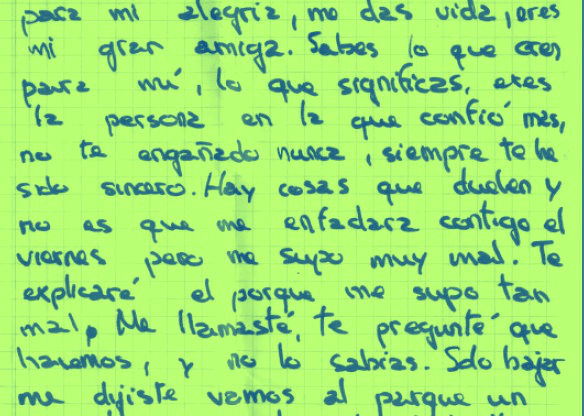 para mi alegria, me das vida, eres
mi gran amiga. Sabes lo que eres
para mí, lo que significas, eres
la persona en la que confió más,
no te engañado nunca, siempre te he
sido sincero. Hay cosas que duelen y
no es que me enfadara contigo el
viernes pero me supo muy mal. Te
explicaré el porque me supo tan
mal, Me llamasté, te pregunté que
haremos, y no lo sabias. Solo bajar
me dijiste vamos al parque un